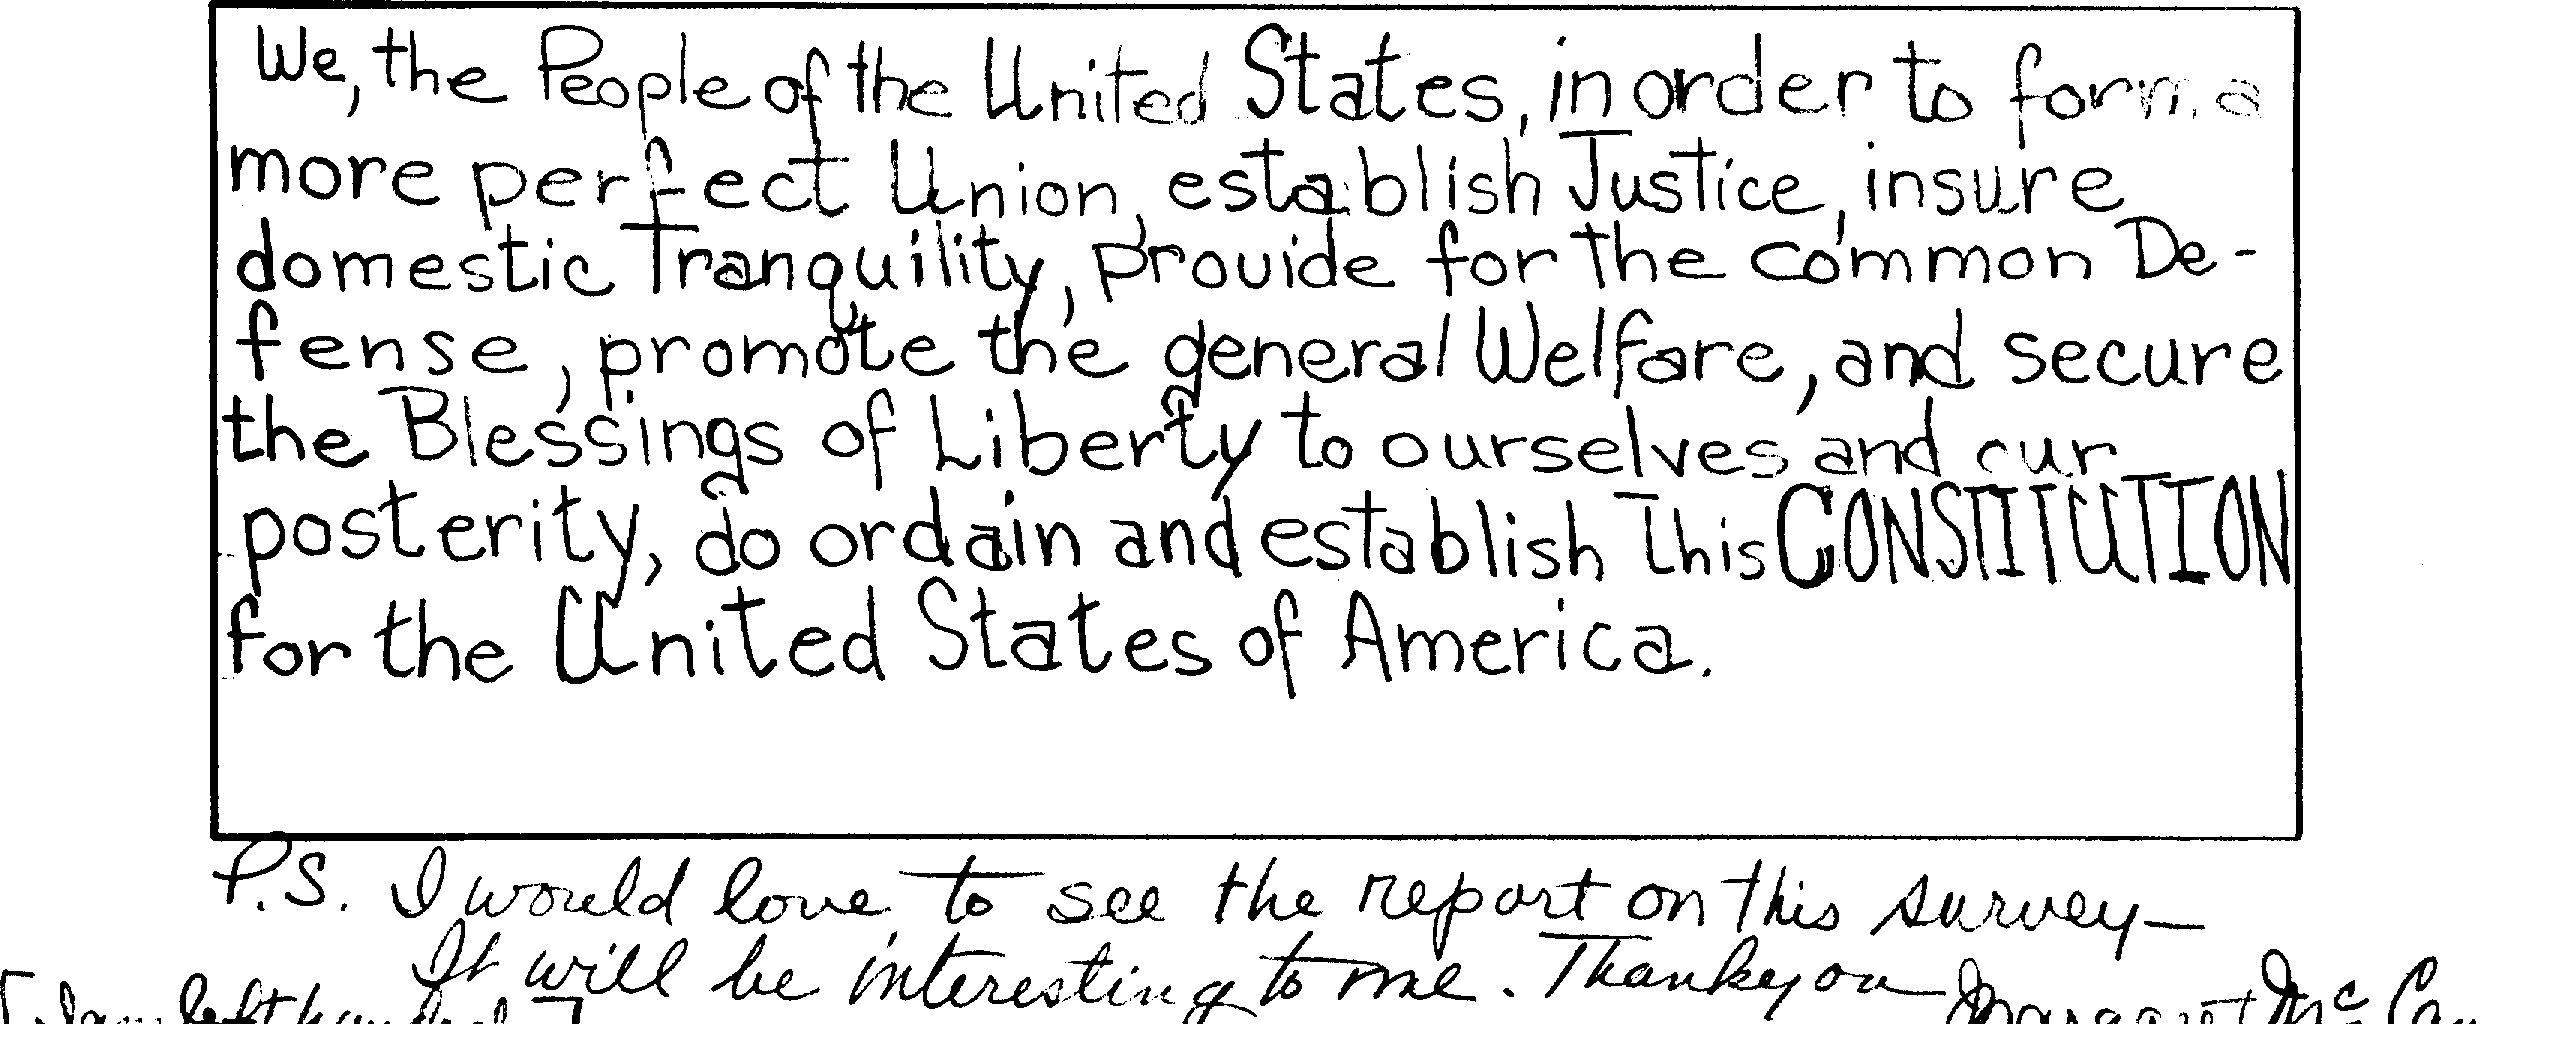 We, the People of the United States, in order to form a
more perfect Union, establish Justice, insure
domestic Tranquility, provide for the common De-
fense, promote the general Welfare, and secure
the Blessings of Liberty to ourselves and our
posterity, do ordain and establish this CONSTITUTION
for the United States of America.
P.S. I would love to see the report on this survey—
It will be interesting to me. Thank you Margaret Mc
[I am left handed]